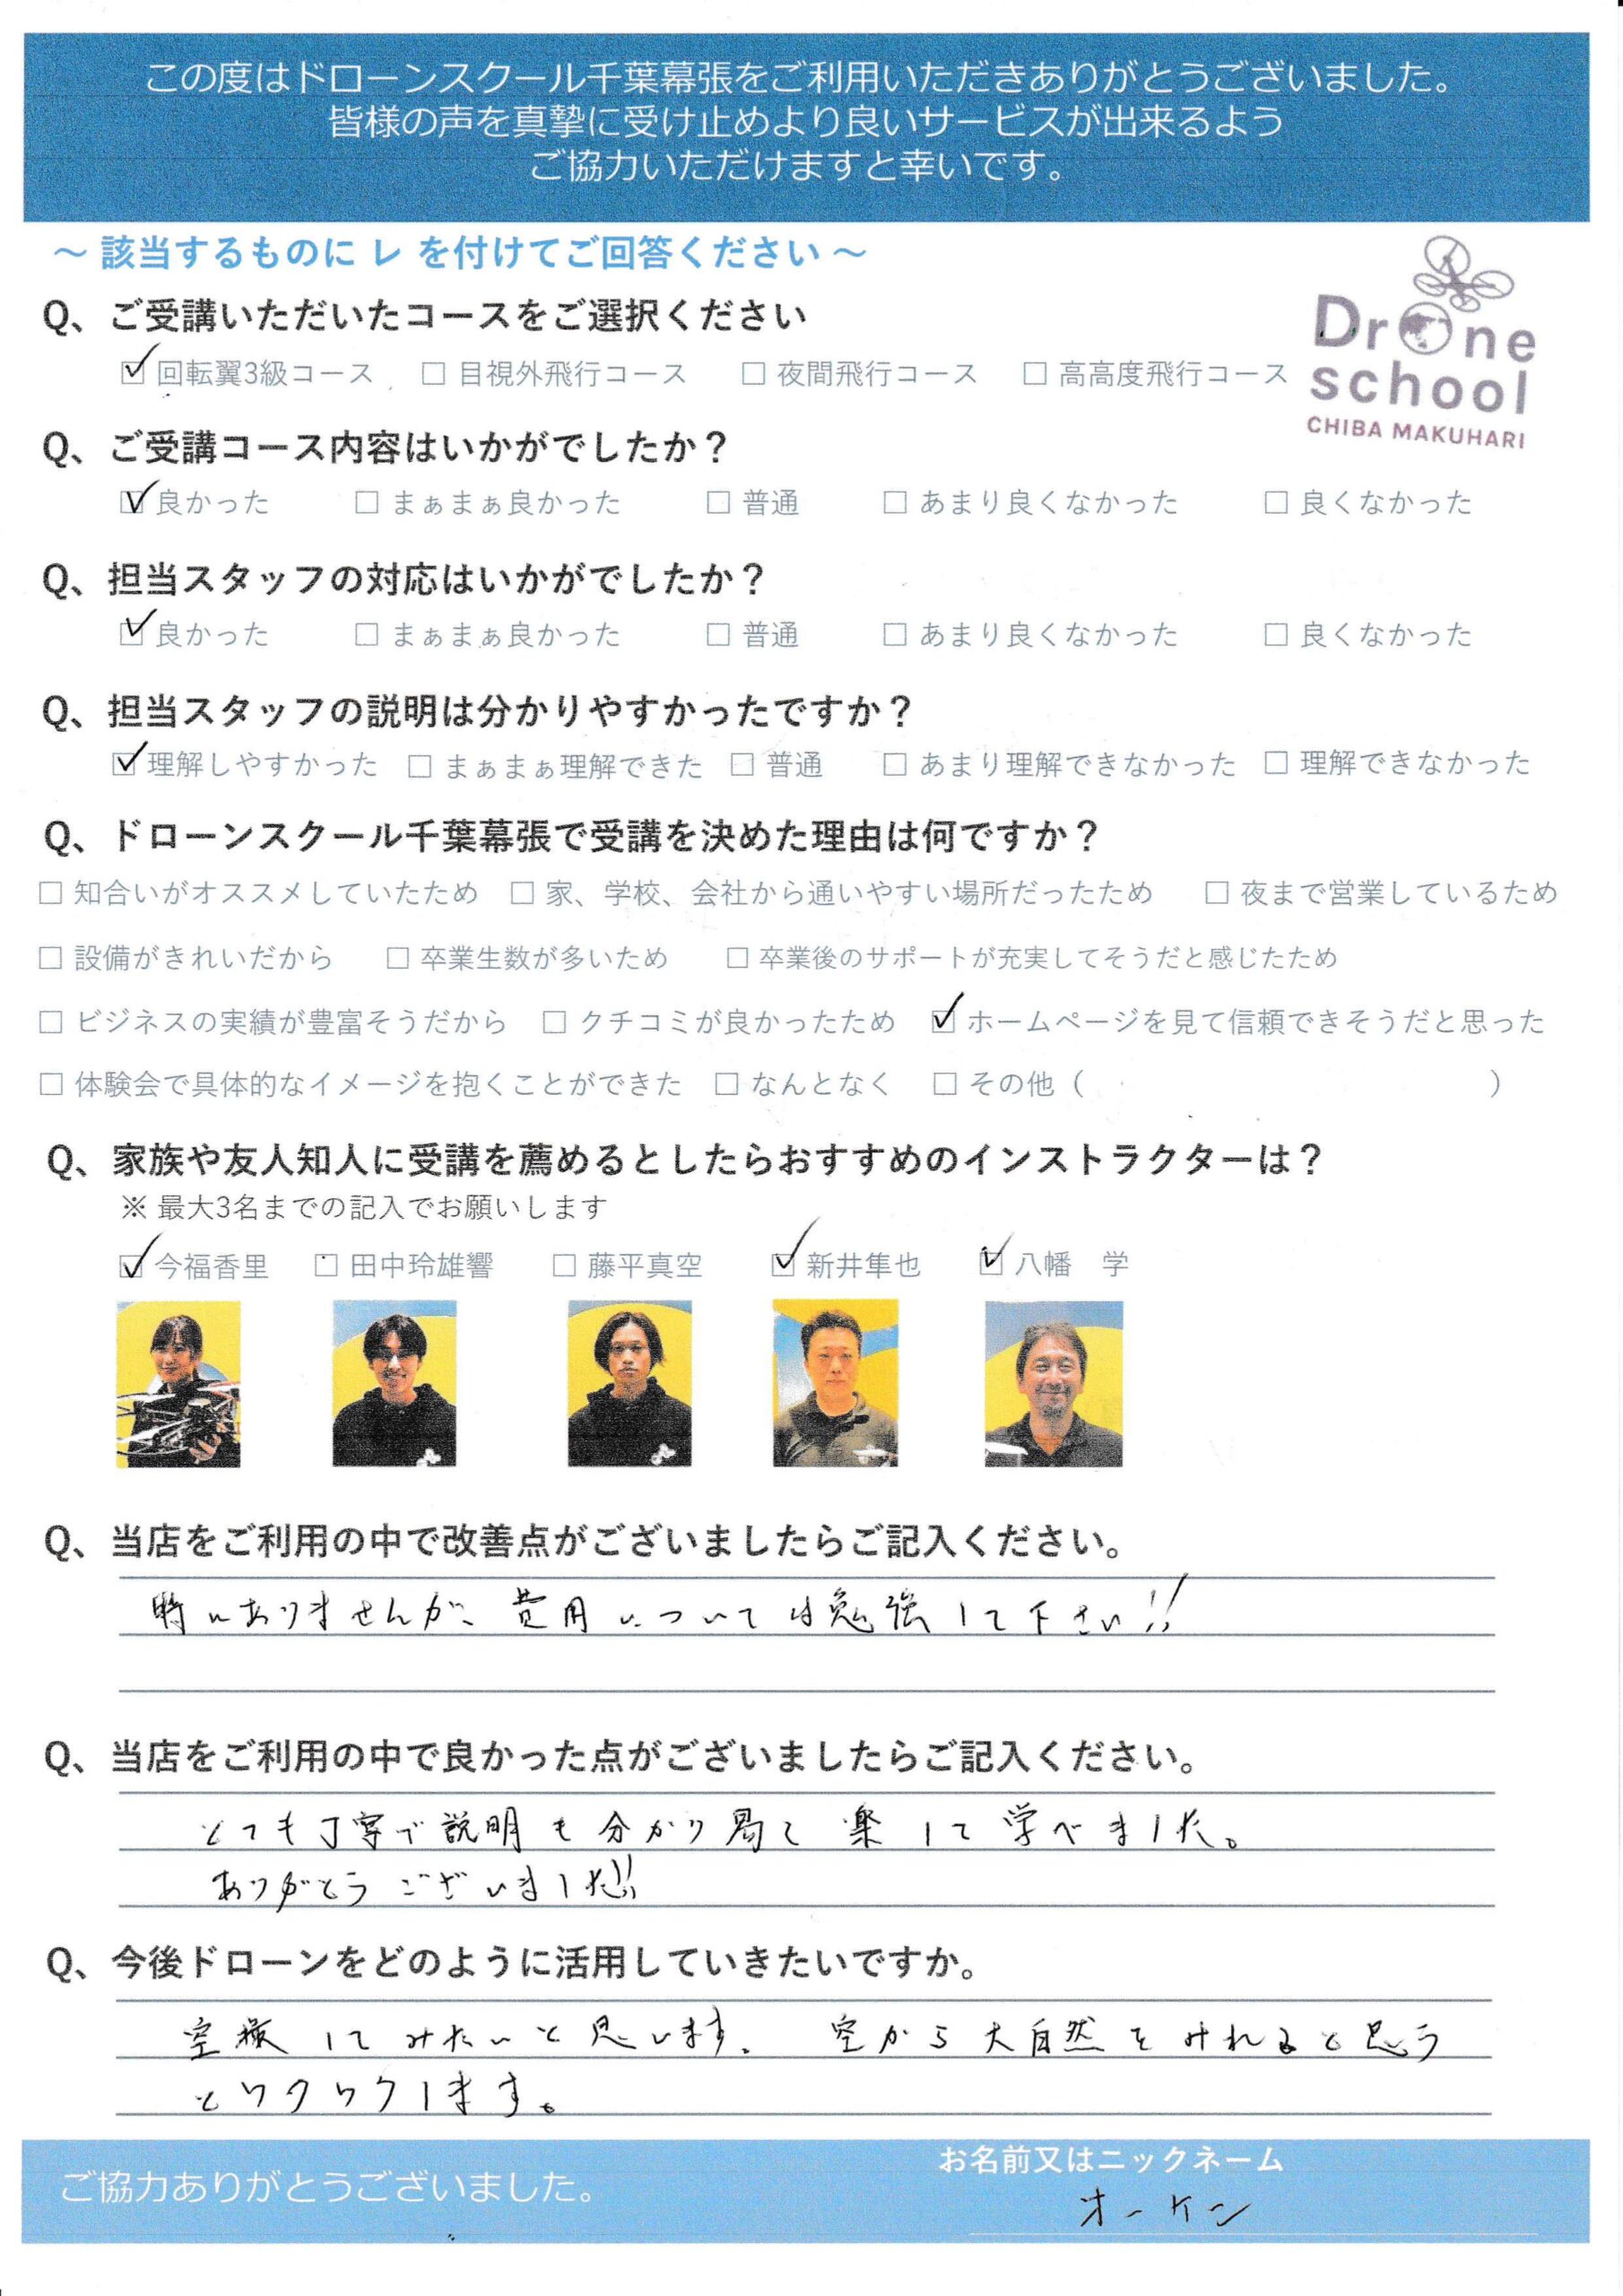 この度はドローンスクール千葉幕張をご利用いただきありがとうございました。
皆様の声を真摯に受け止めより良いサービスが出来るよう
ご協力いただけますと幸いです。
～ 該当するものに レ を付けてご回答ください ～
Drone
school
CHIBA MAKUHARI
Q、ご受講いただいたコースをご選択ください
☑ 回転翼3級コース □ 目視外飛行コース □ 夜間飛行コース □ 高高度飛行コース
Q、ご受講コース内容はいかがでしたか？
☑ 良かった □ まぁまぁ良かった □ 普通 □ あまり良くなかった □ 良くなかった
Q、担当スタッフの対応はいかがでしたか？
☑ 良かった □ まぁまぁ良かった □ 普通 □ あまり良くなかった □ 良くなかった
Q、担当スタッフの説明は分かりやすかったですか？
☑ 理解しやすかった □ まぁまぁ理解できた □ 普通 □ あまり理解できなかった □ 理解できなかった
Q、ドローンスクール千葉幕張で受講を決めた理由は何ですか？
□ 知合いがオススメしていたため □ 家、学校、会社から通いやすい場所だったため □ 夜まで営業しているため
□ 設備がきれいだから □ 卒業生数が多いため □ 卒業後のサポートが充実してそうだと感じたため
□ ビジネスの実績が豊富そうだから □ クチコミが良かったため ☑ ホームページを見て信頼できそうだと思った
□ 体験会で具体的なイメージを抱くことができた □ なんとなく □ その他（ ）
Q、家族や友人知人に受講を薦めるとしたらおすすめのインストラクターは？
※ 最大3名までの記入でお願いします
☑ 今福香里 □ 田中玲雄響 □ 藤平真空 ☑ 新井隼也 ☑ 八幡 学
Q、当店をご利用の中で改善点がございましたらご記入ください。
特にありませんが、費用については勉強して下さい!!
Q、当店をご利用の中で良かった点がございましたらご記入ください。
とても丁寧で説明も分かり易く楽して学べました。
ありがとうございました!!
Q、今後ドローンをどのように活用していきたいですか。
空撮してみたいと思います。空から大自然をみれると思う
とワクワクします。
ご協力ありがとうございました。
お名前又はニックネーム
オーケン